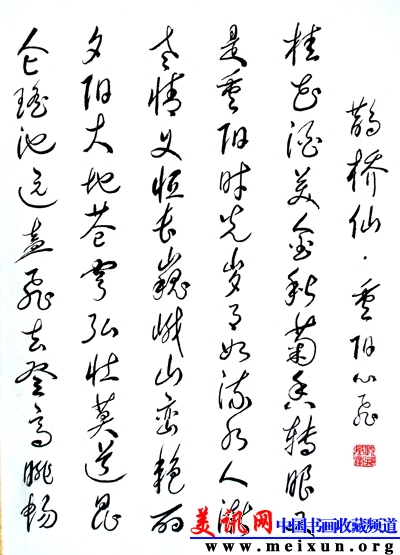 鹊桥仙·重阳心飞
桂花酒美金秋菊香转眼又
是重阳时光岁月如流水人潇
老情义恒长巍峨山峦艳丽
夕阳大地苍穹弘壮莫道昆
仑瑶池远盍飞去登高眺畅
美讯网 中国书画收藏频道
www.meixun.org